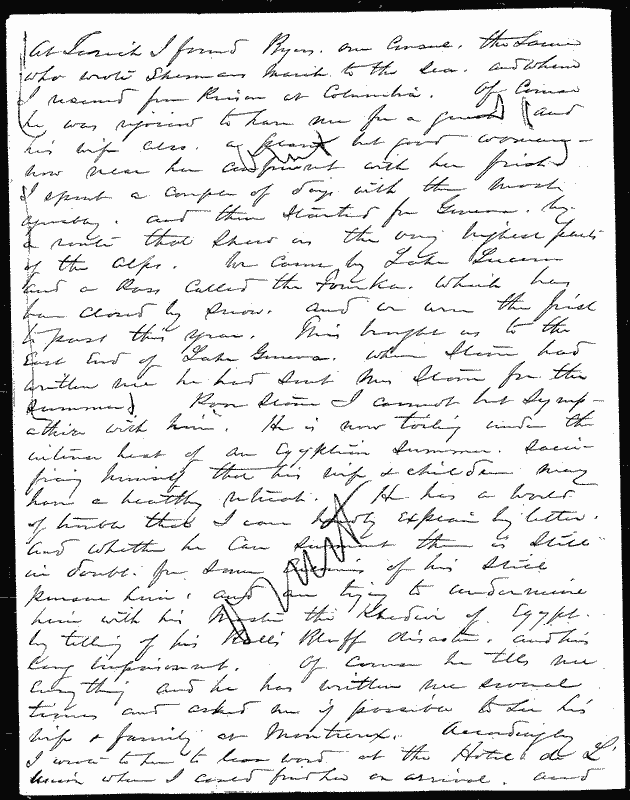 At Zurich I found Byers. our Consul. the same
who wrote Shermans March to the Sea. and whom
I rescued from Prison at Columbia. Of Course
he was rejoiced to have me for a guest, and
his wife also. a but good woman,
now near her confinement with her first.
I spent a couple of days with them most
agreeably. and then started for Geneva. by
a route that shew us the very highest parts
of the Alps. We came by Lake Lucerne
and a Pass called the Fourka. which has
been closed by snow. and we were the first
to pass this year. This brought us to the
East End of Lake Geneva. where Stone had
written me he had sent Mrs Stone for the
summer. Poor Stone I cannot but symp-
athise with him. He is now toiling under the
intense heat of an Egyptian summer. Sacri-
ficing himself that his wife & children may
have a healthy retreat. He has a world
of trouble that I can hardly explain by letter.
and whether he can surmount them is still
in doubt. for some enemies of his still
pursue him. and are trying to undermine
him with his Master the Khedive of Egypt.
by telling of his Balls Bluff disaster. and his
long imprisonment. Of Course he tells me
everything and he has written me several
times and asked me if possible to see his
wife & family at Montreux. Accordingly
I wrote to her to leave word at the Hotel de L'
when I could find her on arrival. and
Omit
Omit